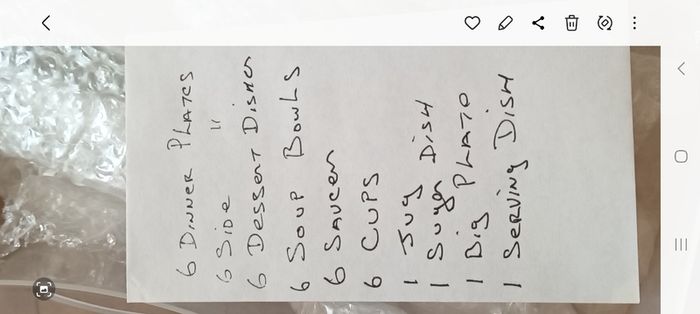 6 DINNER PLATES
6 SIDE "
6 DESSERT DISHES
6 SOUP BOWLS
6 SAUCER
6 CUPS
1 JUG
1 Sugar DISH
1 Big PLATO
1 SERVING DISH